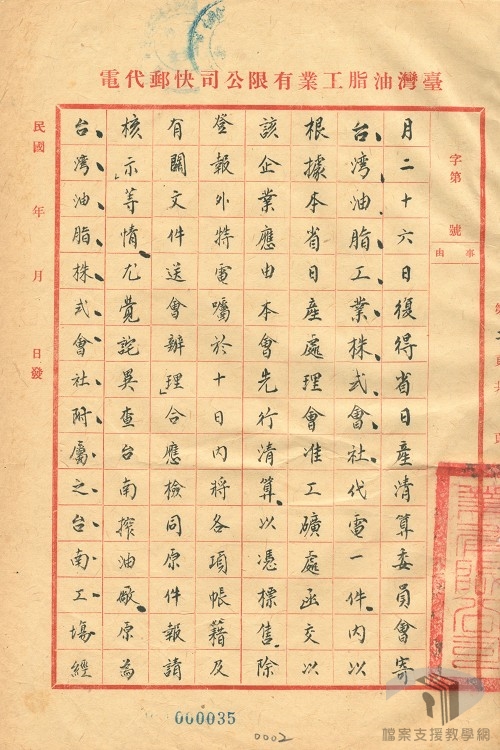 臺灣油脂工業有限公司快郵代電
字第 號
事由
月二十六日復得省日產清算委員會寄
台灣油脂工業株式會社代電一件內以
根據本省日產處理會准工礦處函交以
該企業應由本會先行清算以憑標售除
登報外特電囑於十日內將各項帳籍及
有關文件送會辦理」合應檢同原件報請
核示等情尤覺詫異查台南搾油廠原為
台灣油脂株式會社附屬之台南工場經
民國 年 月 日發
000035
0002
檔案支援教學網